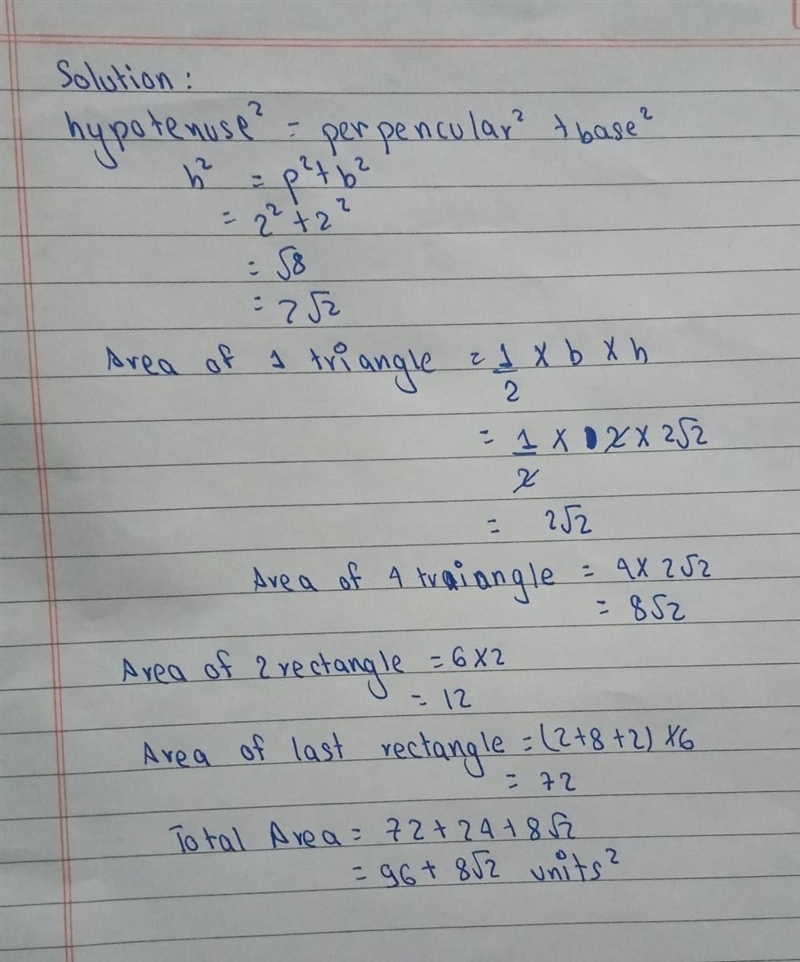 Solution:
hypotenuse² = perpencular² + base²
h² = p² + b²
= 2² + 2²
= √8
= 2√2
Area of 1 triangle = 1/2 × b × h
= 1/2 × 2 × 2√2
= 2√2
Area of 4 traiangle = 4 × 2√2
= 8√2
Area of 2 rectangle = 6×2
= 12
Area of last rectangle = (2+8+2) ×6
= 72
Total Area = 72 + 24 + 8√2
= 96 + 8√2 units²